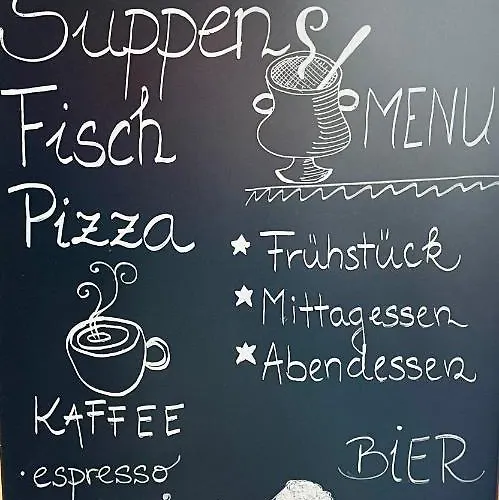 Suppen
Fisch
Pizza
KAFFEE
• espresso
MENU
Frühstück
Mittagessen
Abendessen
BiER